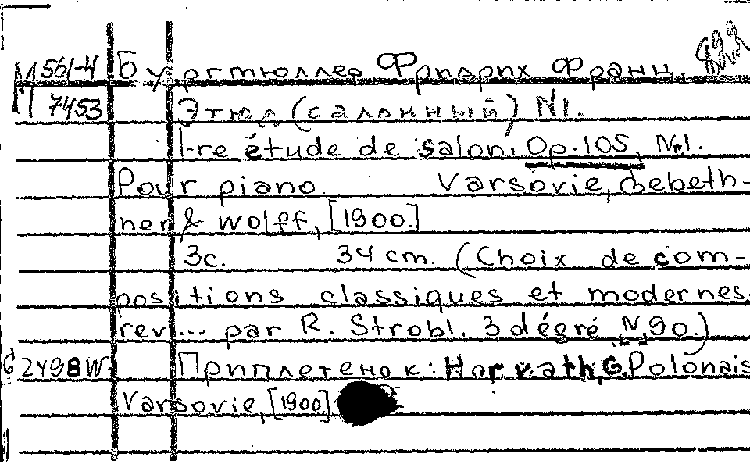 М 561-4 Бургмюллер Фридрих Франц.
П 7453 Этюд (салонный) N1.
1-re étude de salon. Op.105, №1.
Pour piano. Varsovie, Gebeth-
ner & Wolff, [1900.]
3с. 34 cm. (Choix de com-
positions classiques et modernes
rev... par R. Strobl. 3 dégré N.90.)
G 2498 W Приплетено к: Horvath, G. Polonais
Varsovie, [1900]